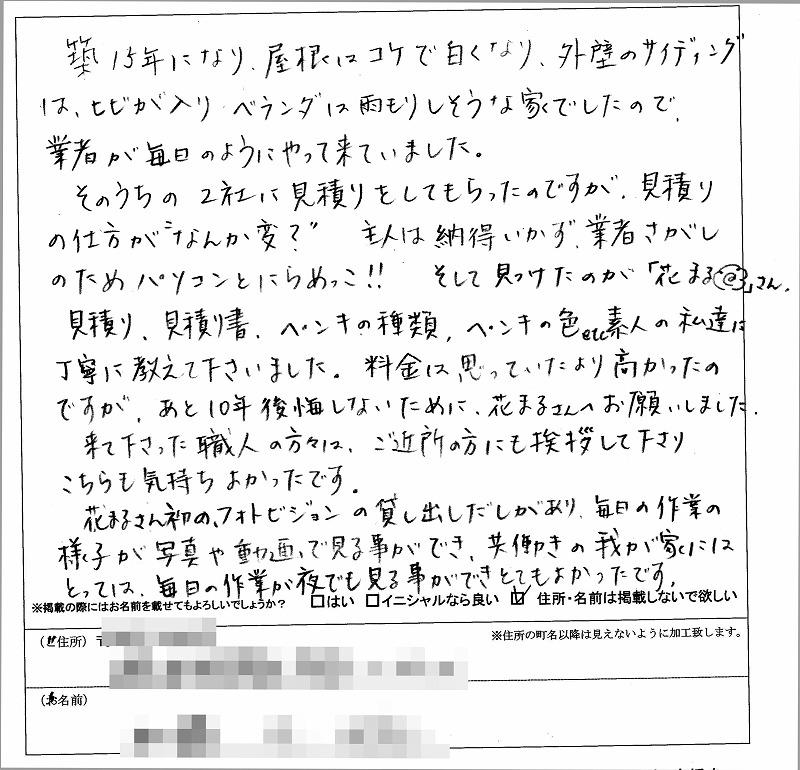 築15年になり、屋根はコケで白くなり、外壁のサイディング
は、ヒビが入り ベランダは雨もりしそうな家でしたので、
業者が毎日のようにやって来ていました。
そのうちの2社に見積りをしてもらったのですが、見積り
の仕方が“なんか変？” 主人は納得いかず、業者さがし
のためパソコンとにらめっこ!! そして見つけたのが「花まる@」さん。
見積り、見積り書、ペンキの種類、ペンキの色etc素人の私達に
丁寧に教えて下さいました。料金は、思っていたより高かったの
ですが、あと10年後悔しないために、花まるさんへお願いしました。
来て下さった職人の方々は、ご近所の方にも挨拶して下さり
こちらも気持ちよかったです。
花まるさん初の、フォトビジョンの貸し出しだしがあり、毎日の作業の
様子が写真や動画、で見る事ができ、共働きの我が家には
とっては、毎日の作業が夜でも見る事ができとてもよかったです。
※掲載の際にはお名前を載せてもよろしいでしょうか？ □はい □イニシャルなら良い ☑ 住所・名前は掲載しないで欲しい
(ご住所) 〒 ※住所の町名以降は見えないように加工致します。
(お名前)